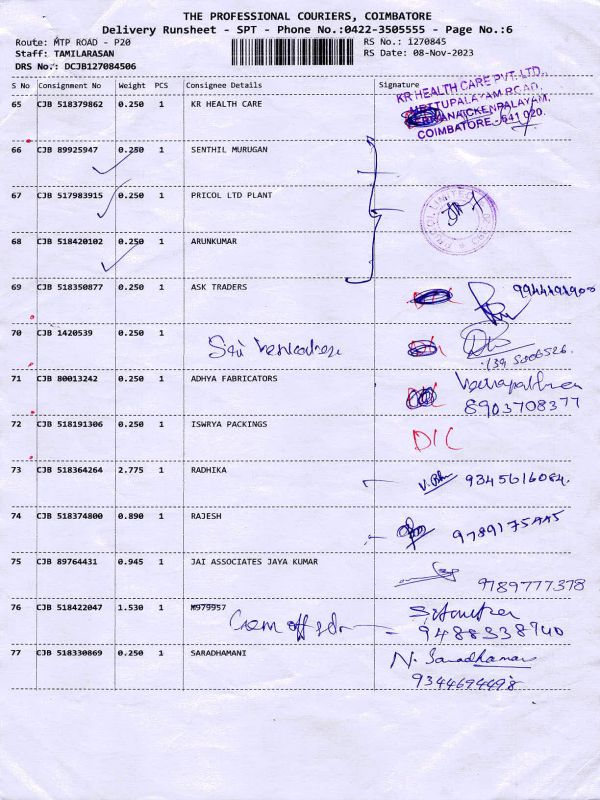 THE PROFESSIONAL COURIERS, COIMBATORE
Delivery Runsheet - SPT - Phone No.:0422-3505555 - Page No.:6
Route: MTP ROAD - P20 RS No.: 1270845
Staff: TAMILARASAN RS Date: 08-Nov-2023
DRS No.: DCJB127084506
S No Consignment No Weight PCS Consignee Details Signature
65 CJB 518379862 0.250 1 KR HEALTH CARE
KR HEALTH CARE PVT. LTD.,
METTUPALAYAM ROAD,
COIMBATORE - 641 020.
66 CJB 89925947 0.250 1 SENTHIL MURUGAN
67 CJB 517983915 0.250 1 PRICOL LTD PLANT
68 CJB 518420102 0.250 1 ARUNKUMAR
69 CJB 518350877 0.250 1 ASK TRADERS
70 CJB 1420539 0.250 1
71 CJB 80013242 0.250 1 ADHYA FABRICATORS
8903708377
72 CJB 518191306 0.250 1 ISWRYA PACKINGS DIC
73 CJB 518364264 2.775 1 RADHIKA 9345616084.
74 CJB 518374800 0.890 1 RAJESH
75 CJB 89764431 0.945 1 JAI ASSOCIATES JAYA KUMAR 9789777378
76 CJB 518422047 1.530 1 M979957
9488338940
77 CJB 518330869 0.250 1 SARADHAMANI N. Saradhamani
9344694498